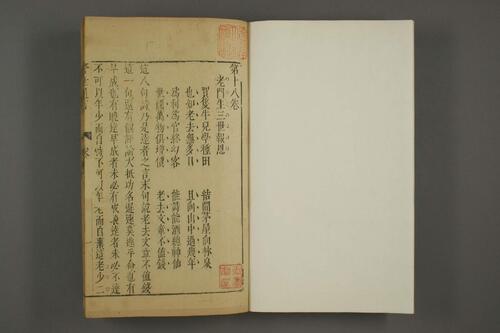 第十八卷
老門生三世報恩
買隻牛兒學種田 結間茅屋向林泉
也知老去無多日 且向山中過幾年
為利為官終幻客 能詩能酒總神仙
世間萬物俱增價 老去文章不值錢
這八句詩乃是達者之言末句說老去文章不值錢
這一句還有個評論大抵功名遲速莫逃乎命也有
早成也有晚達早成者未必有成晚達者未必不達
不可以年少而自恃不可以年老而自棄這老少二